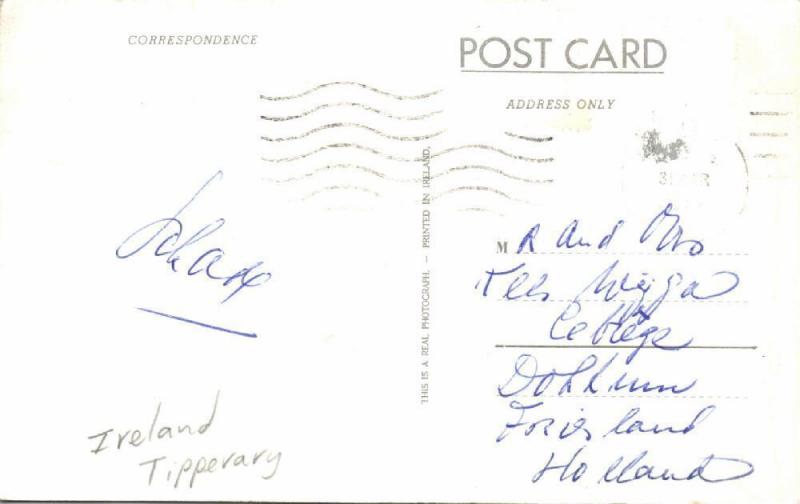 CORRESPONDENCE
POST CARD
ADDRESS ONLY
THIS IS A REAL PHOTOGRAPH. — PRINTED IN IRELAND.
MR and Mrs
Kees
Dokkum
Friesland
Holland
Ireland
Tipperary